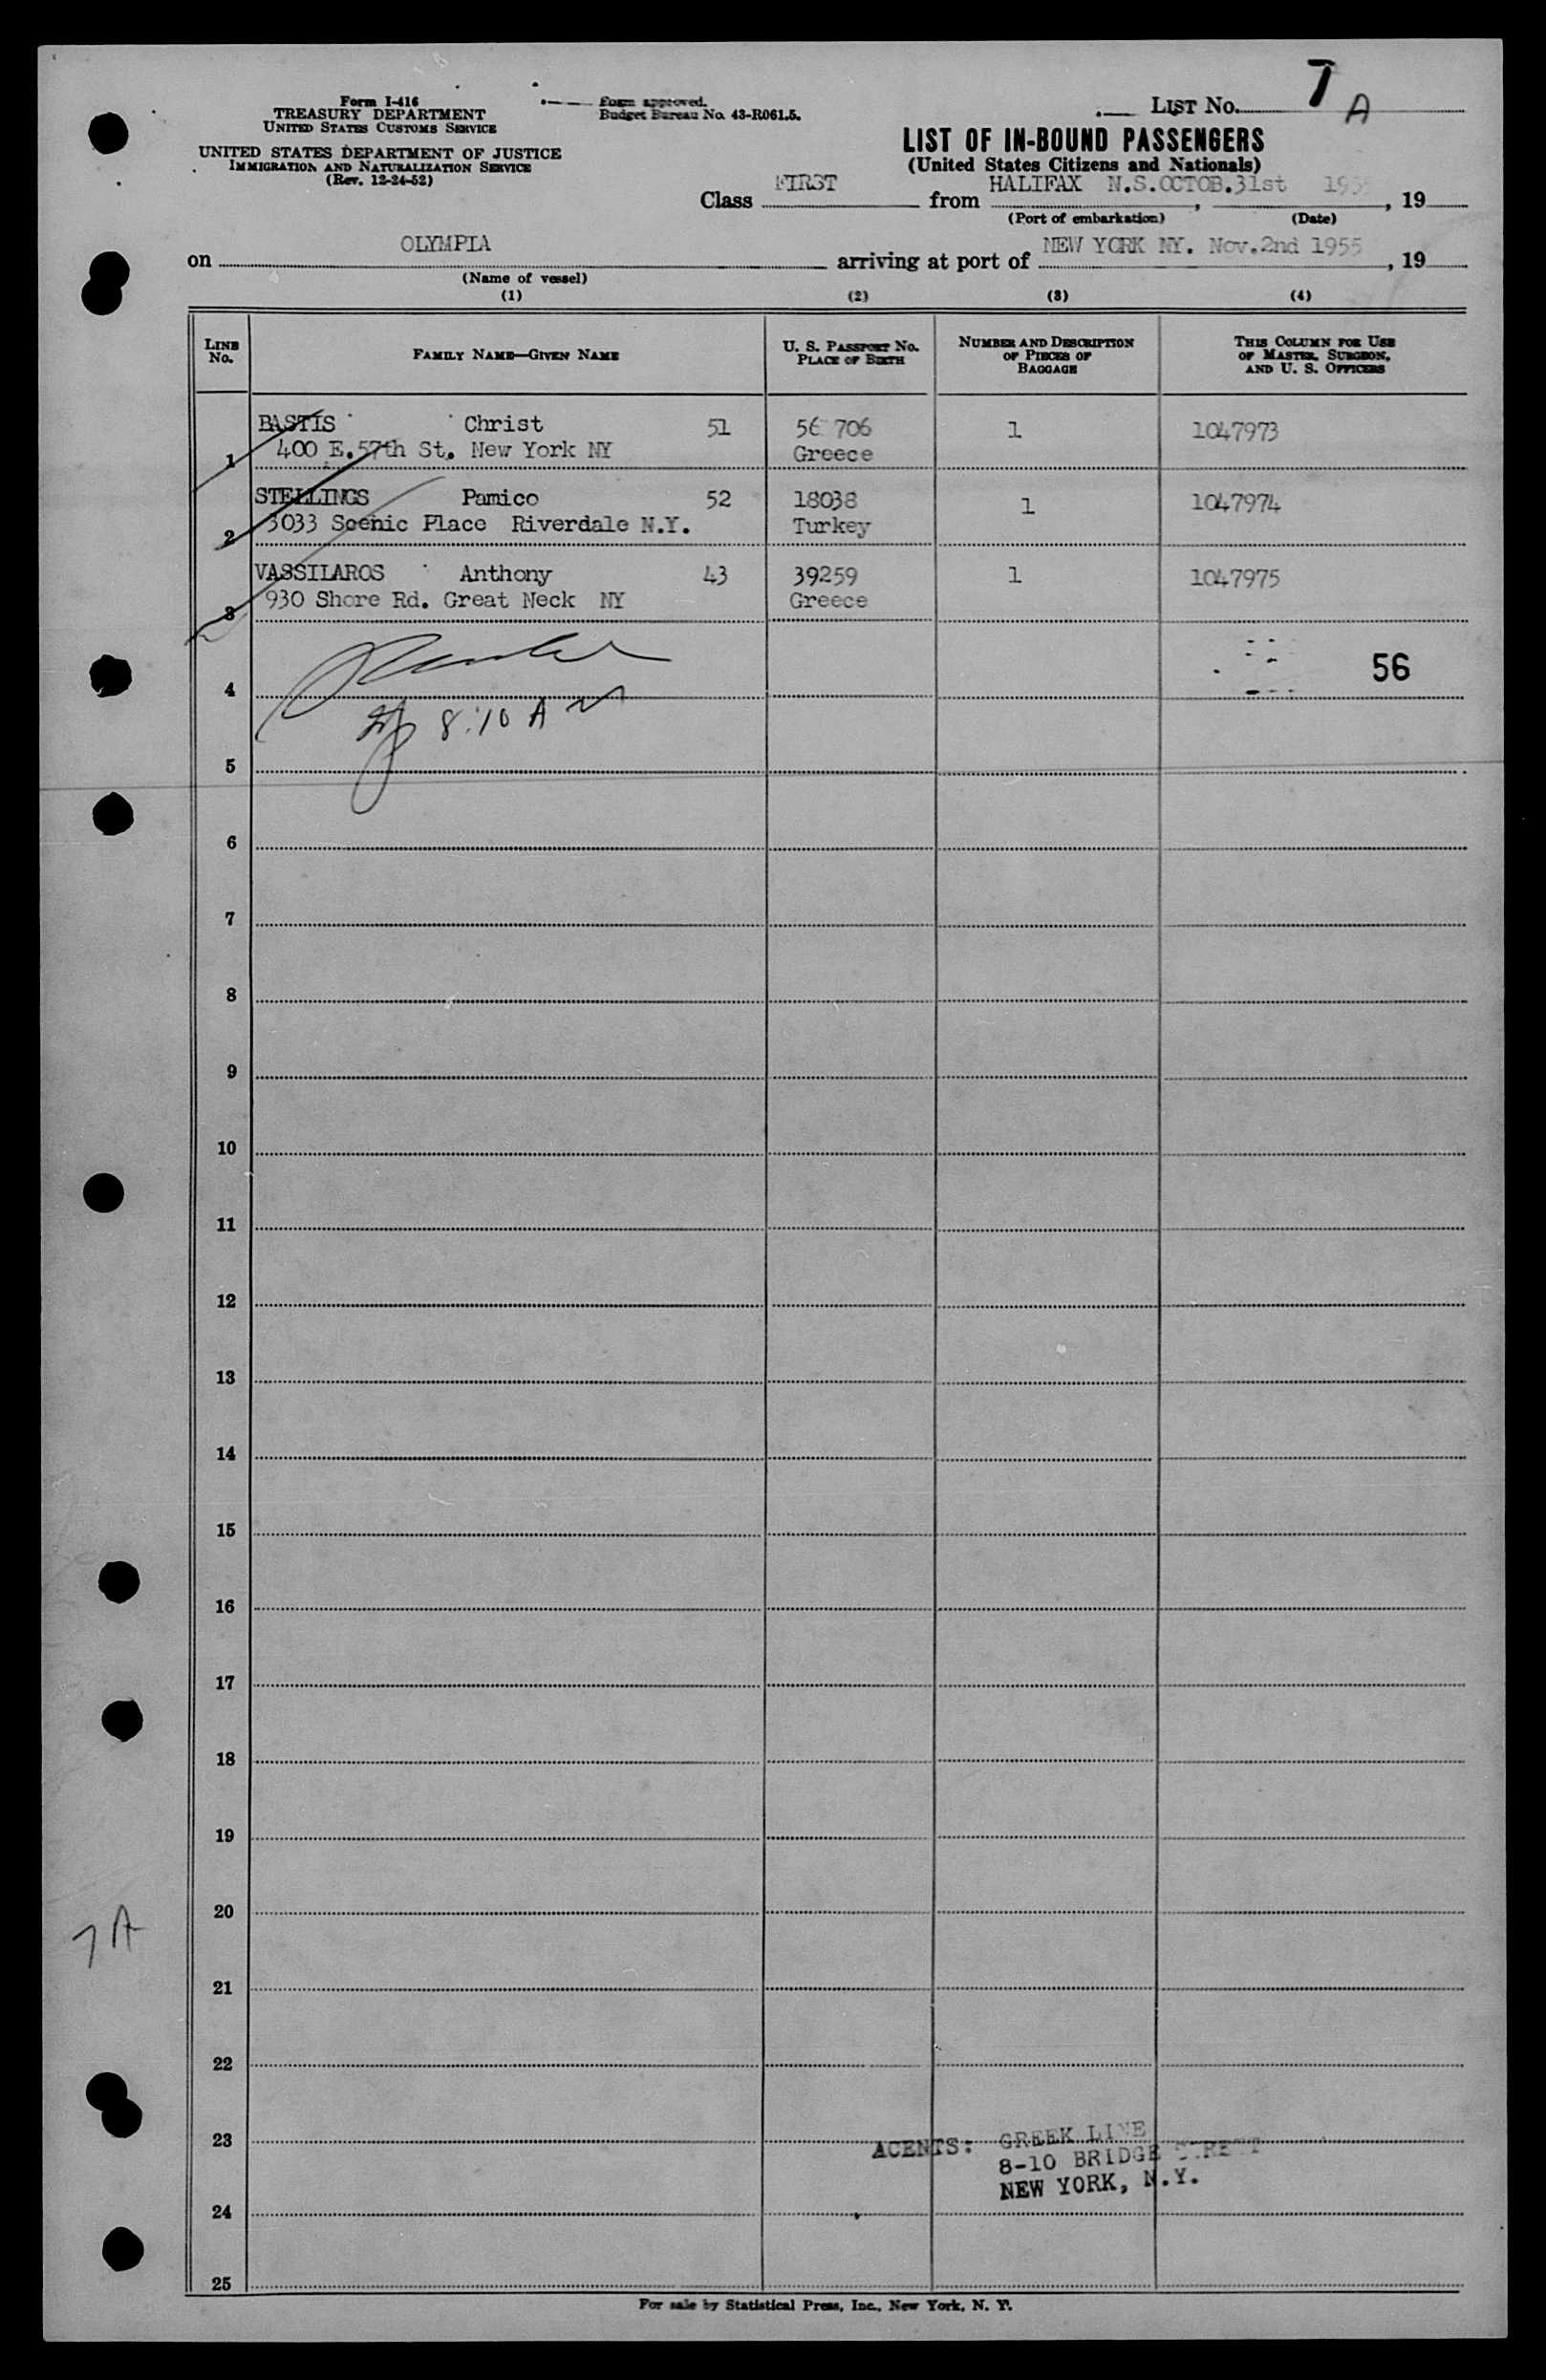 Form I-416
TREASURY DEPARTMENT
UNITED STATES CUSTOMS SERVICE
UNITED STATES DEPARTMENT OF JUSTICE
IMMIGRATION AND NATURALIZATION SERVICE
(Rev. 12-24-52)
Form approved.
Budget Bureau No. 43-R061.5.
LIST No. 7 A
LIST OF IN-BOUND PASSENGERS
(United States Citizens and Nationals)
Class FIRST from HALIFAX N.S. OCTOB.31st 195 , 19
(Port of embarkation) (Date)
on OLYMPIA arriving at port of NEW YORK NY. Nov.2nd 1955 , 19
(Name of vessel)
(1) (2) (3) (4)
LINE No. FAMILY NAME—GIVEN NAME U. S. PASSPORT No. PLACE OF BIRTH NUMBER AND DESCRIPTION OF PIECES OF BAGGAGE THIS COLUMN FOR USE OF MASTER, SURGEON, AND U. S. OFFICERS
BASTIS Christ 51 56 706 1 1047973
1 400 E.57th St. New York NY Greece
STELLINGS Pamico 52 18038 1 1047974
2 3033 Scenic Place Riverdale N.Y. Turkey
VASSILAROS Anthony 43 39259 1 1047975
3 930 Shore Rd. Great Neck NY Greece
56
4
8:10 A
5
6
7
8
9
10
11
12
13
14
15
16
17
18
19
20
7A
21
22
23 AGENTS: GREEK LINE
8-10 BRIDGE STREET
NEW YORK, N.Y.
24
25
For sale by Statistical Press, Inc., New York, N. Y.